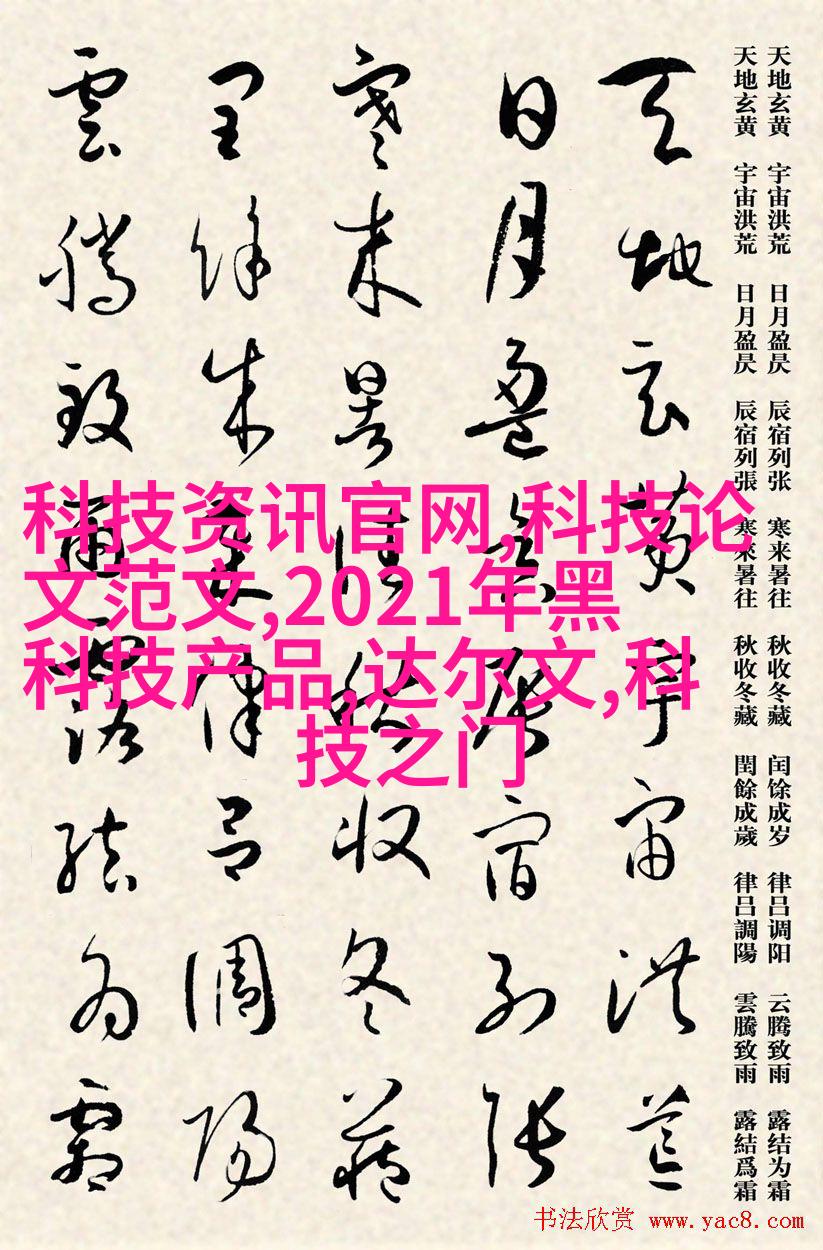 天地玄黄 宇宙洪荒 日月盈昃 辰宿列张 寒来暑往 秋收冬藏 闰馀成岁 律吕调阳 云腾致雨 露结为霜
天地玄黄 宇宙洪荒 日月盈昃 辰宿列張 寒来暑往 秋收冬藏 閏餘成歲 律吕調陽 雲騰致雨 露結爲霜
天地玄黄宇宙洪荒
日月盈昃辰宿列張
寒来暑往秋收冬藏
閏餘成歲律吕調陽
雲騰致雨露結為霜
科技资讯官网,科技论
文范文,2021年黑
科技产品,达尔文,科
技之门
书法欣赏 www.yac8.com